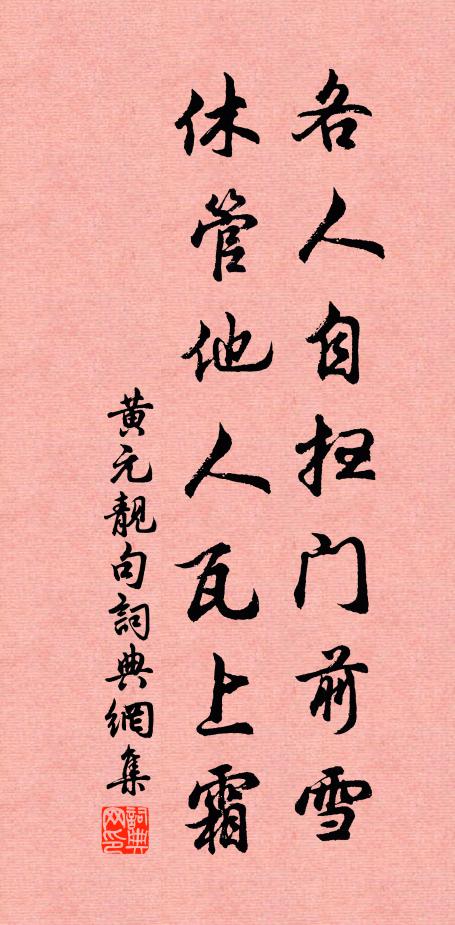 各人自扫门前雪
休管他人瓦上霜
黄元靓句詞典網集
詞典网印